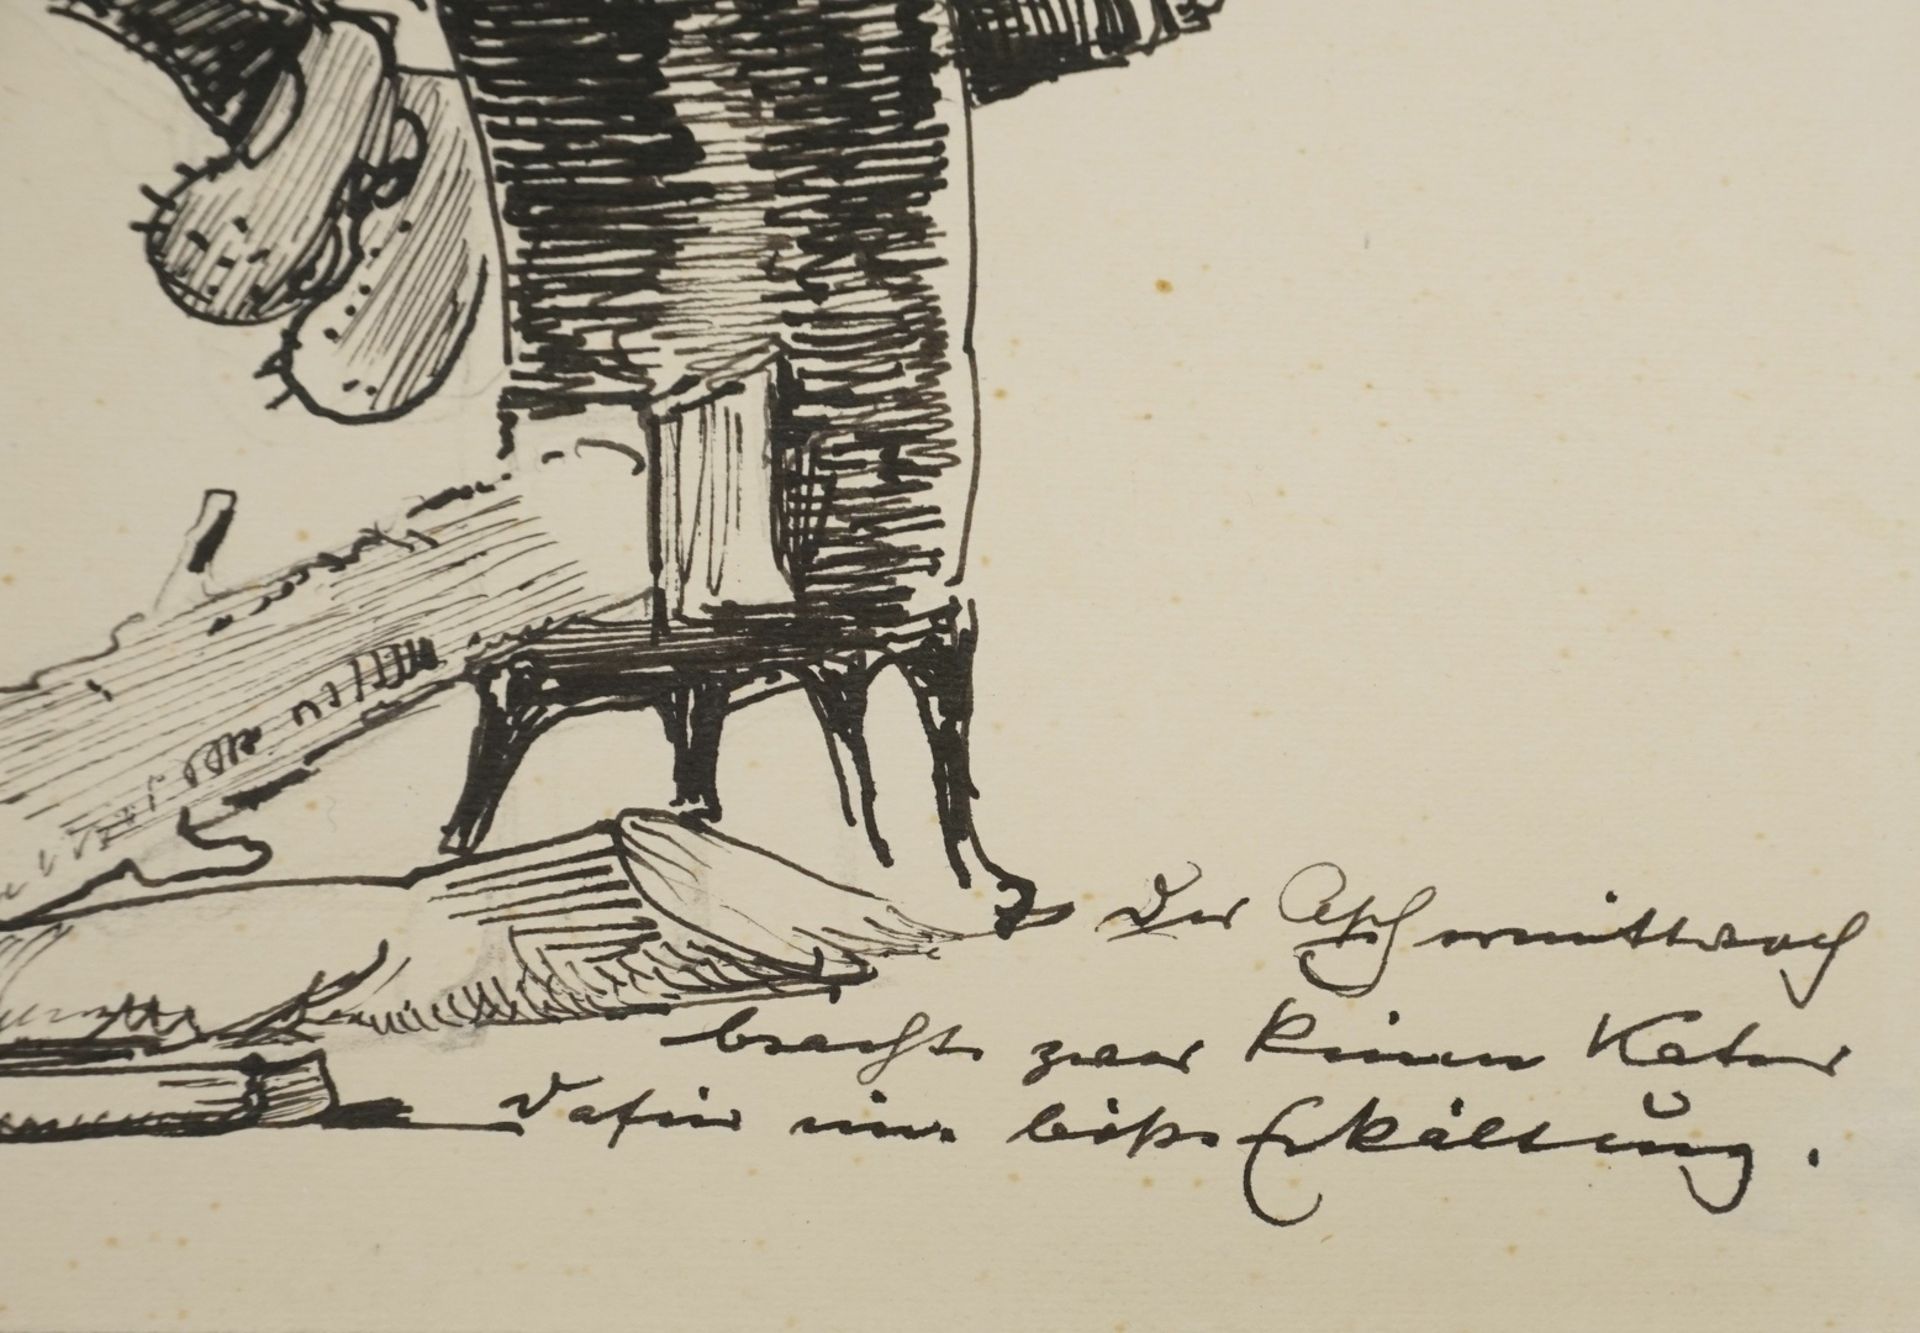 Der Aschermittwoch
brachte zwar keinen Kater
dafür eine böse Erkältung.